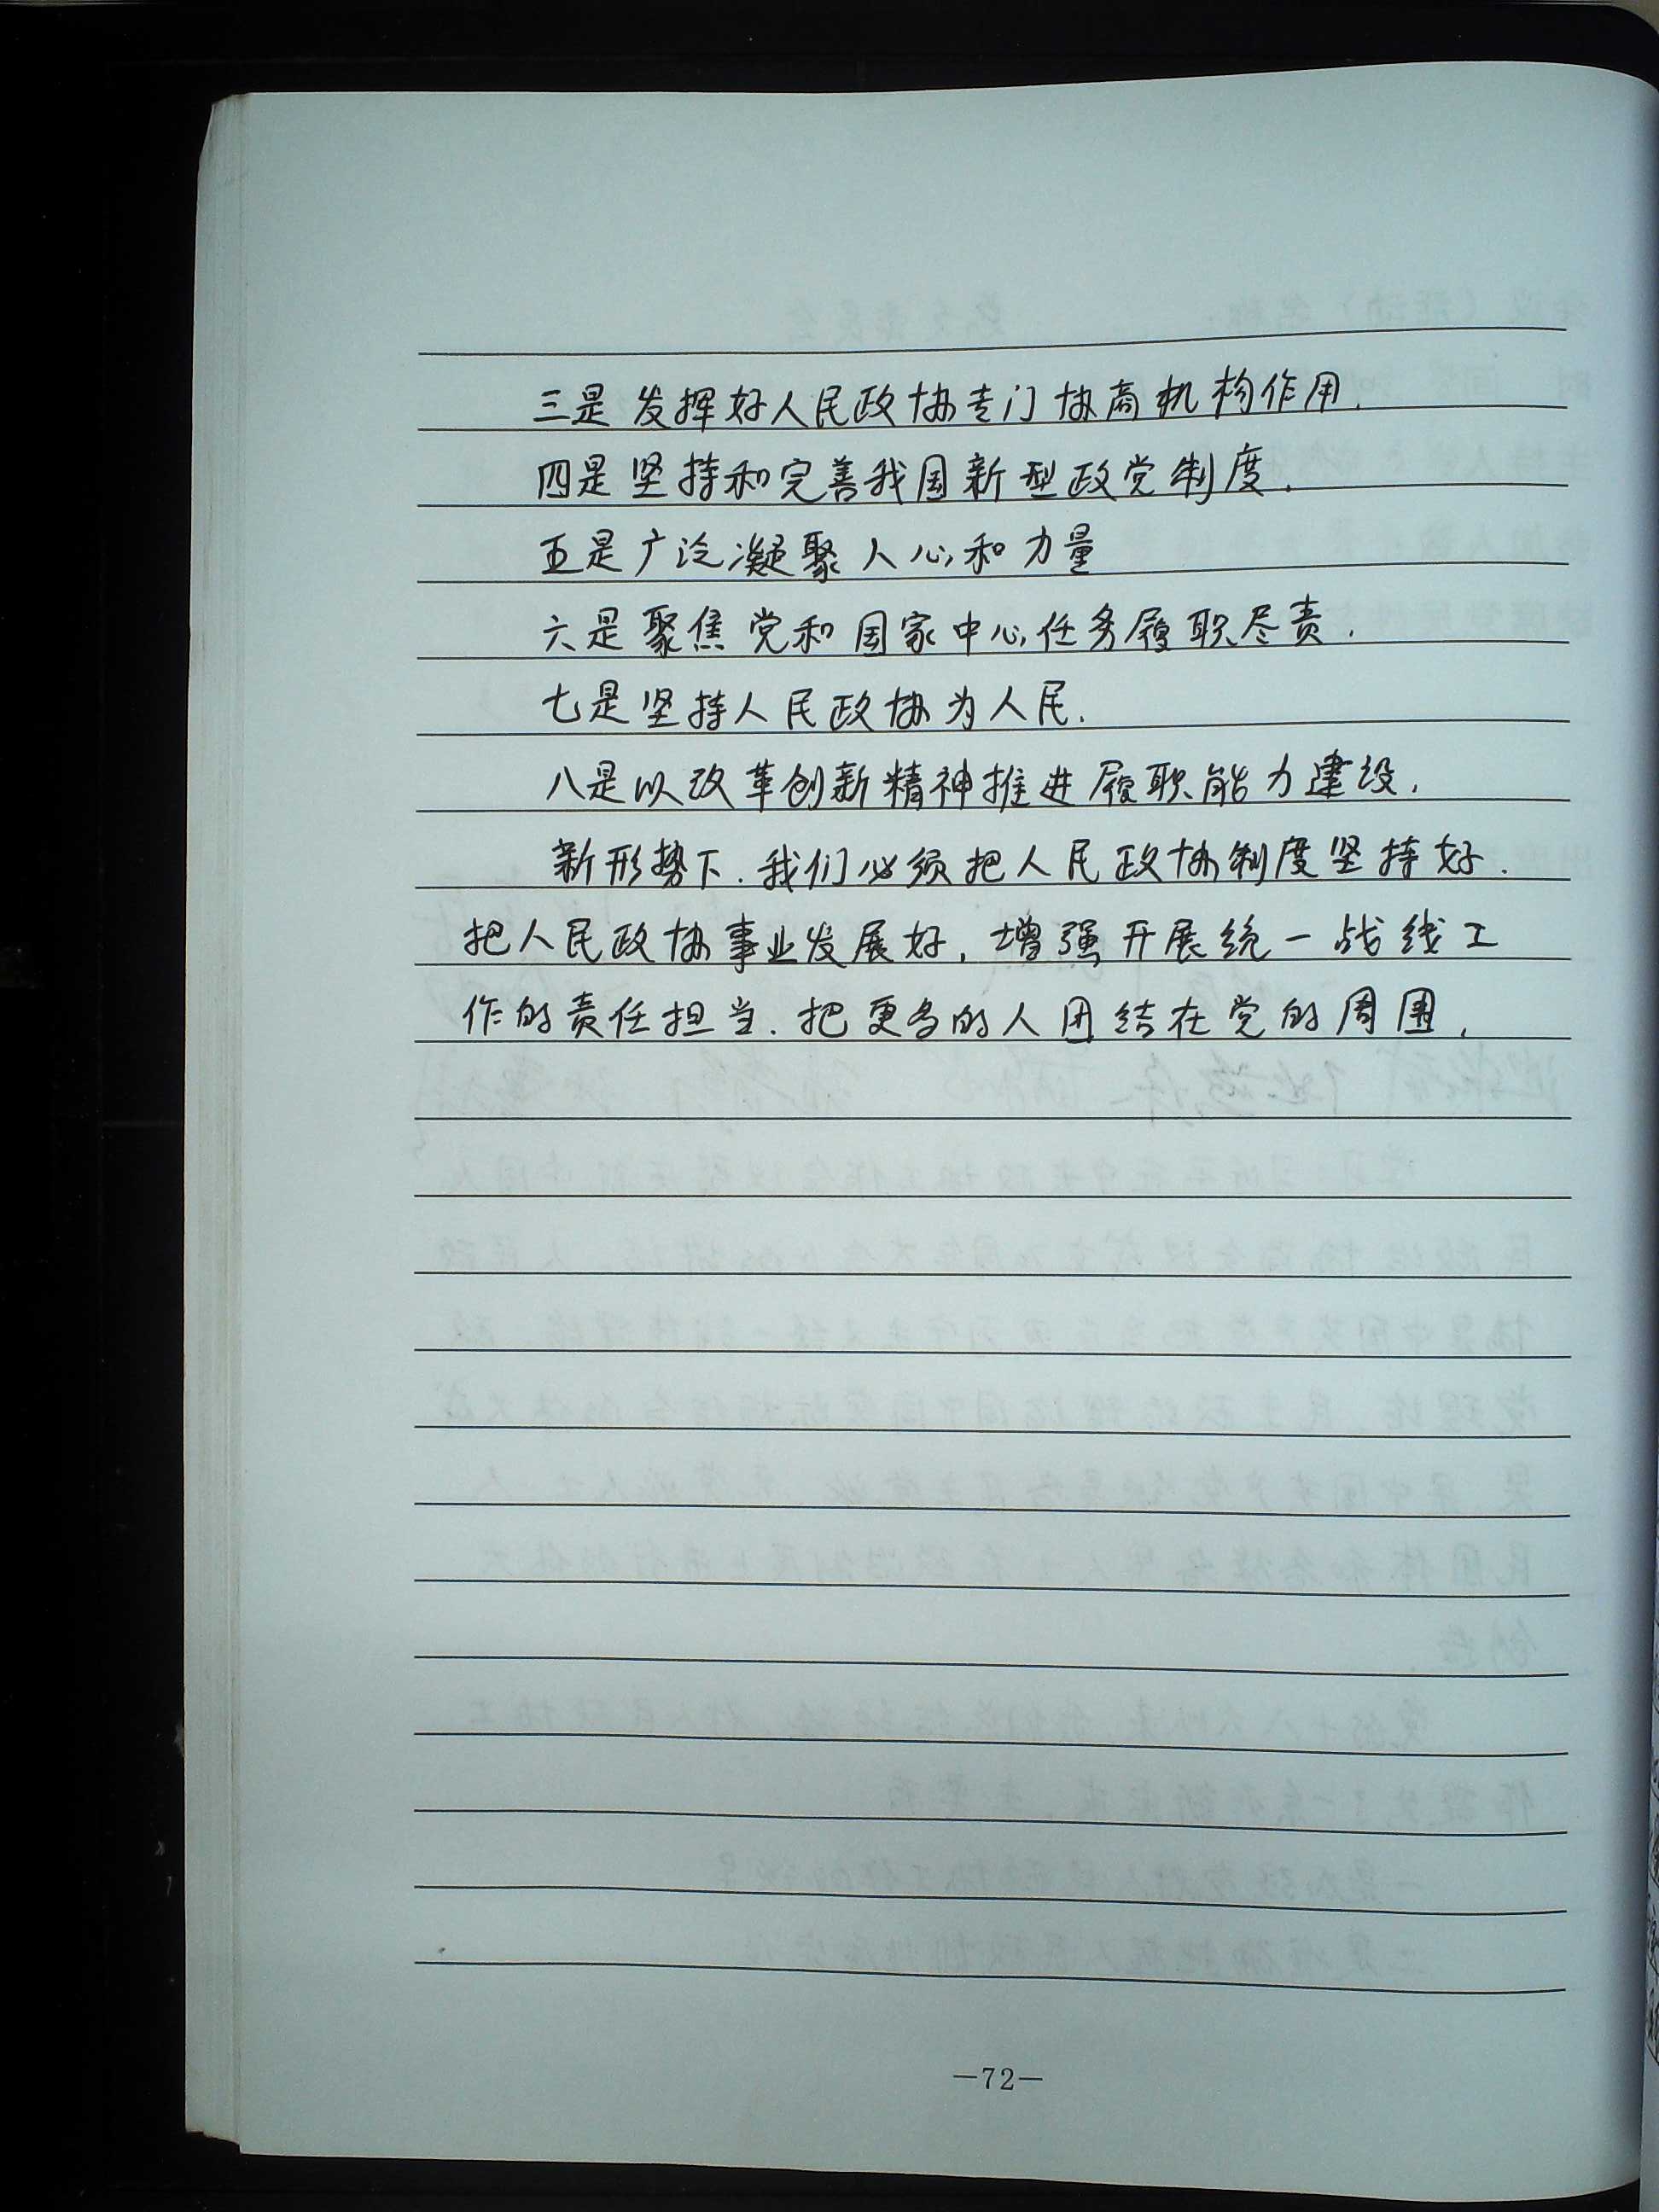 三是发挥好人民政协专门协商机构作用.
四是坚持和完善我国新型政党制度.
五是广泛凝聚人心和力量
六是聚焦党和国家中心任务履职尽责.
七是坚持人民政协为人民.
八是以改革创新精神推进履职能力建设.
新形势下.我们必须把人民政协制度坚持好.
把人民政协事业发展好,增强开展统一战线工
作的责任担当.把更多的人团结在党的周围.
—72—